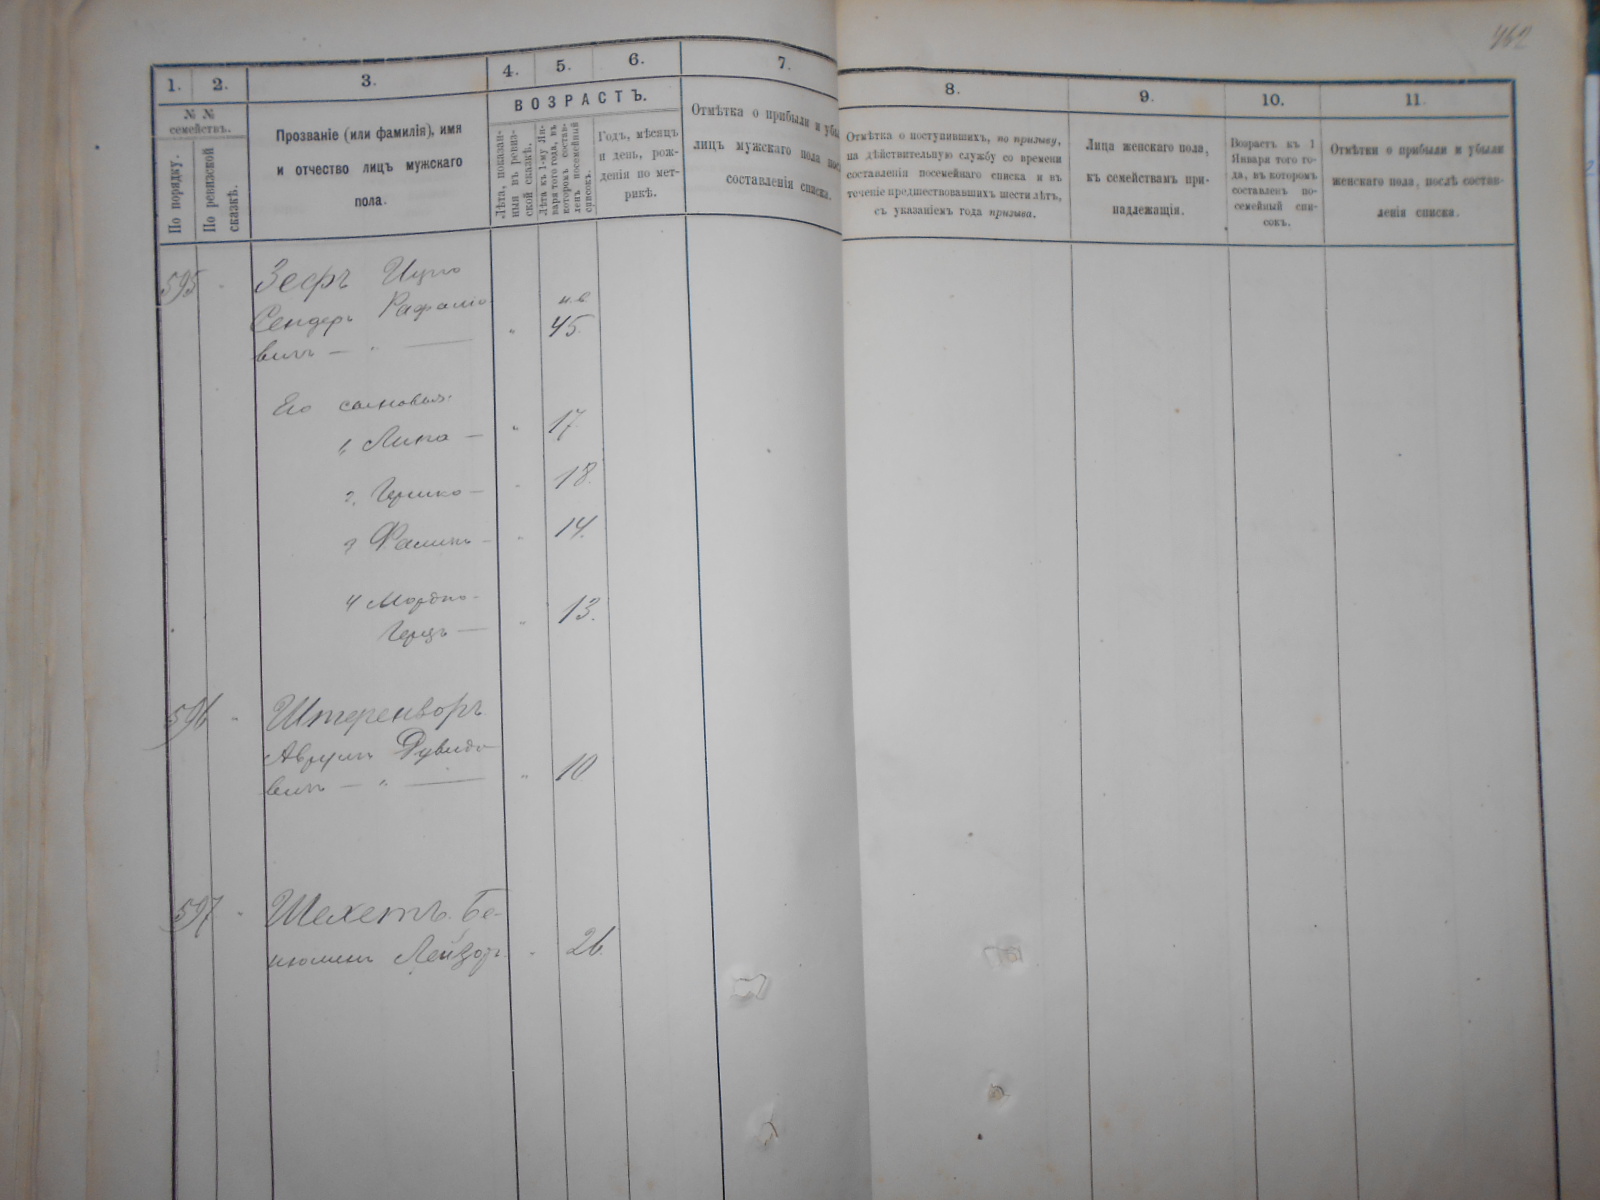 462
1. 2. 3. 4. 5. 6. 7. 8. 9. 10. 11.
№ №
семействъ.
По порядку.
По ревизской
сказкѣ.
Прозваніе (или фамилія), имя
и отчество лицъ мужскаго
пола.
ВОЗРАСТЪ.
Лѣта, показан-
ныя въ ревиз-
ской сказкѣ.
Лѣта къ 1-му Ян-
варя того года, въ
которомъ состав-
ленъ посемейный
списокъ.
Годъ, мѣсяцъ
и день, рож-
денія по мет-
рикѣ.
Отмѣтка о прибыли и убы
лицъ мужскаго пола пос
составленія списка.
Отмѣтка о поступившихъ, по призыву,
на дѣйствительную службу со времени
составленія посемейнаго списка и въ
теченіе предшествовавшихъ шести лѣтъ,
съ указаніемъ года призыва.
Лица женскаго пола,
къ семействамъ при-
надлежащія.
Возрастъ къ 1
Января того го-
да, въ которомъ
составленъ по-
семейный спи-
сокъ.
Отмѣтки о прибыли и убыли
женскаго пола, послѣ состав-
ленія списка.
595 Зефръ Ицко
Сендеръ Рафаило
вичъ — " — " 45
Его сыновья:
1, Липа — " 17
2, Гершко — " 18.
3 Фаликъ — " 14.
4 Мордко-
Герцъ — " 13.
596 " Штеренворъ
Аврумъ Дувидо
вичъ — " — " 10
597 " Шехетъ Бе-
нюминъ Лейзор. " 26.